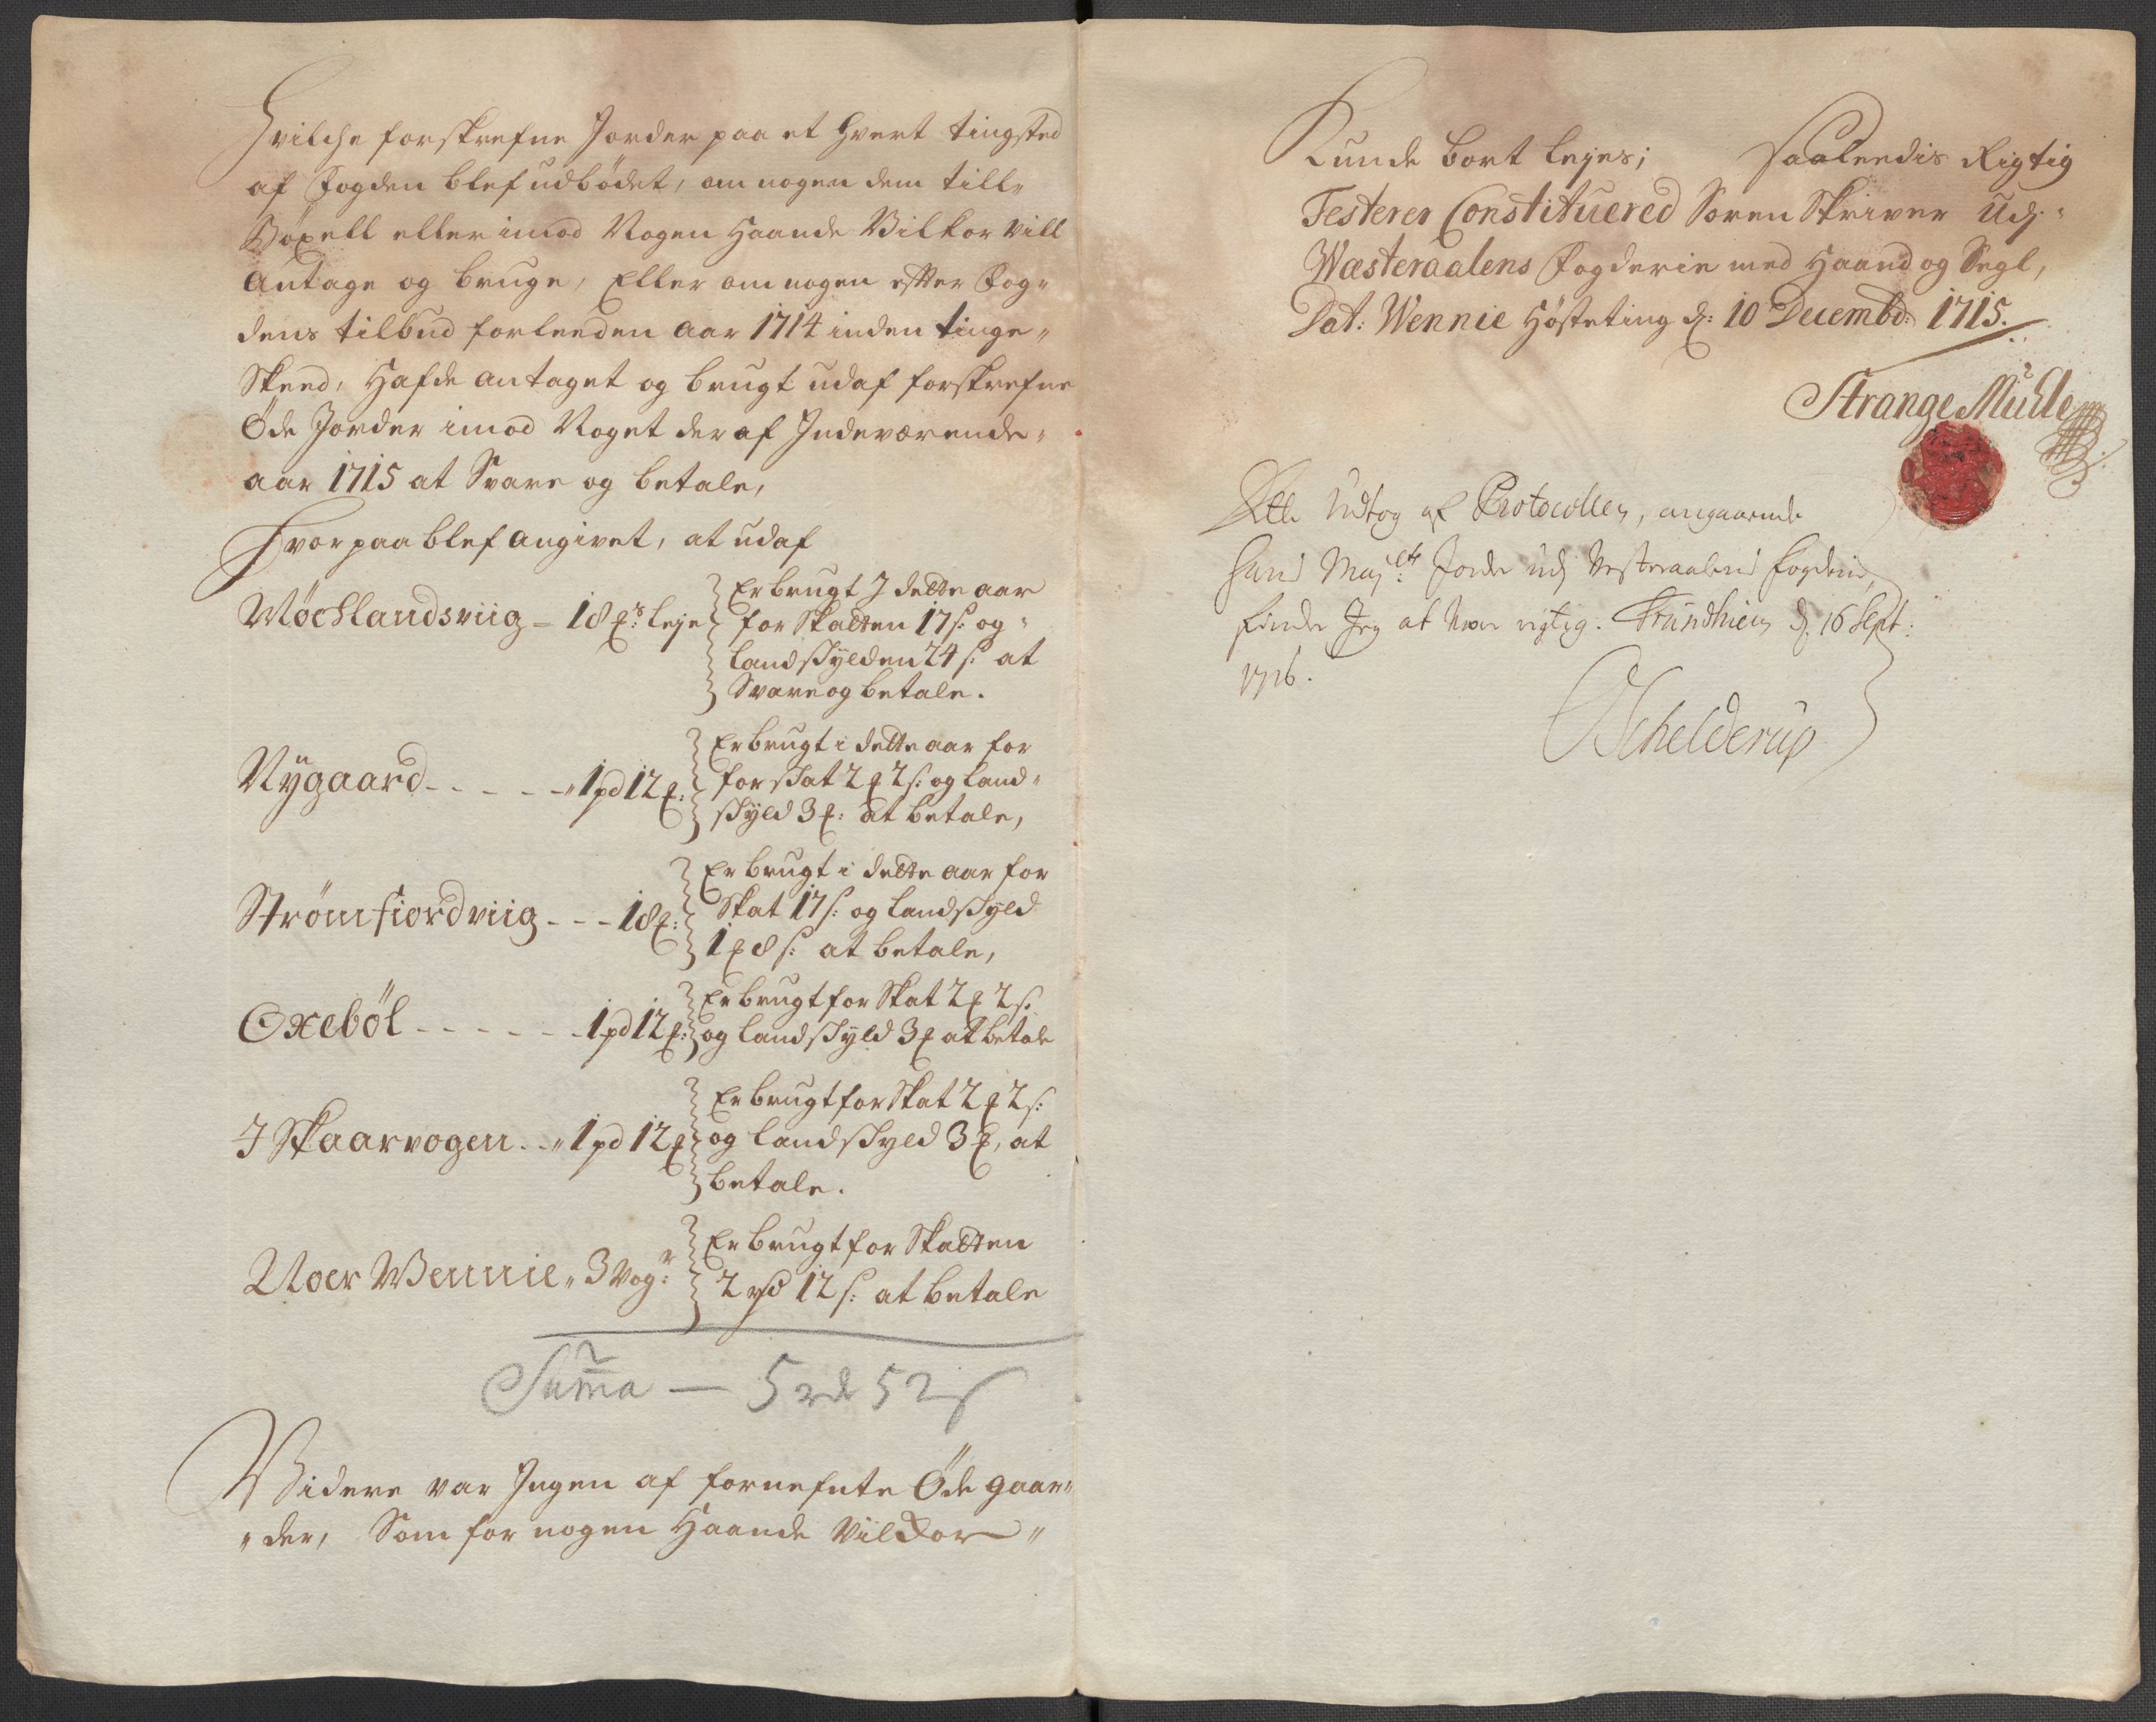 Hvilche forskrefne Jorder paa et hvert tingsted
af Fogden blef udbödet, om nogen dem till„
Böxell eller imod Nogen Haande Vilkor vill
Antage og bruge, Eller om nogen efter Fog„
dens tilbud forleeden Aar 1714 inden tinge„
Skeed, Hafde antaget og brugt udaf forskrefne
Öde Jorder imod Noget deraf Indeværende„
aar 1715 at Svare og betale,
Hvorpaa blef angivet, at udaf
Möcklandsviig – 18 ℔: leje
Er brugt J dette aar
for Skatten 17 s: og„
landskylden 24 s: at
Svare og betale.
Nÿgaard - - - - - „1 pd 12 ℔:
Er brugt i dette aar for
for skat 2 ℔ 2 s: og land„
skyld 3 ℔: at betale,
Strömfiordviig - - - 18 ℔:
Er brugt i dette aar for
Skat 17 s: og landskyld
1 ℔ 8 s: at betale,
Oxeböl - - - - - - - 1 pd 12 ℔:
Er brugt for Skat 2 ℔ 2 s:
og landskyld 3 ℔ at betale
J Skaarvogen - - „1 pd 12 ℔
Er brugt for Skat 2 ℔ 2 s:
og landskyld 3 ℔, at
betale.
Noer Wennie „ 3 Vog:r
Er brugt for Skatten
2 rd 12 s: at betale
Sum̄a — 5 rd 52 s
Widere var Ingen af fornefnte Öde gaar„
„der, Som for nogen Haande Vilkor„
Kunde bort lejes; Saaleedis Rigtig
Testerer Constituered Soren Skriver Udj„
Wæsteraalens Fogderie med Haand og Segl,
Dat: Wennie Hösteting d: 10 Decembd: 1715.
Strange Muhle
Dette Udtog af Protocollen, angaaende
Hans Maj:ets Jorder udj Vesteraalens Fogderie,
finder Jeg at være rigtig. Trundhiem d. 16 Sept:
1716.
Schelderup